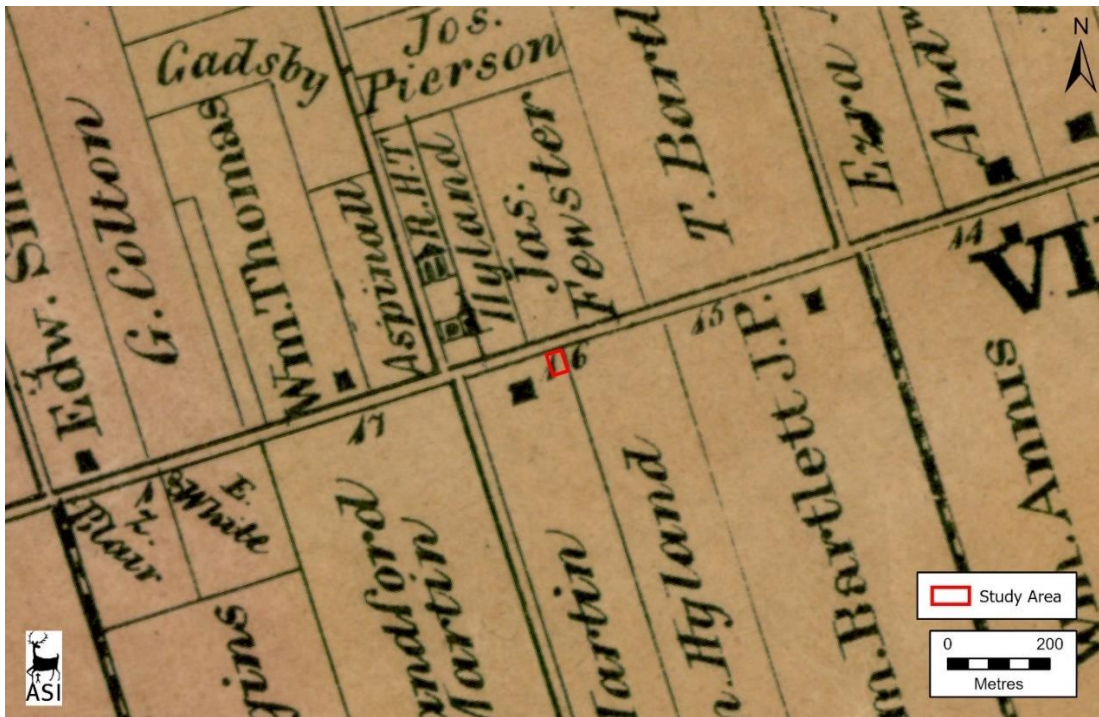 Gadsby
Jos.
Pierson
N
G. Colton
Wm. Thomas
Aspinall
R. H. T.
Hyland
Jas.
Fewster
T. Bart
Ezra
Edw.
44
45
46
47
IA
Z.
Blair
E.
White
Martin
Hyland
m. Bartlett J.P.
Wm. Annis
Study Area
0 200
Metres
ASI